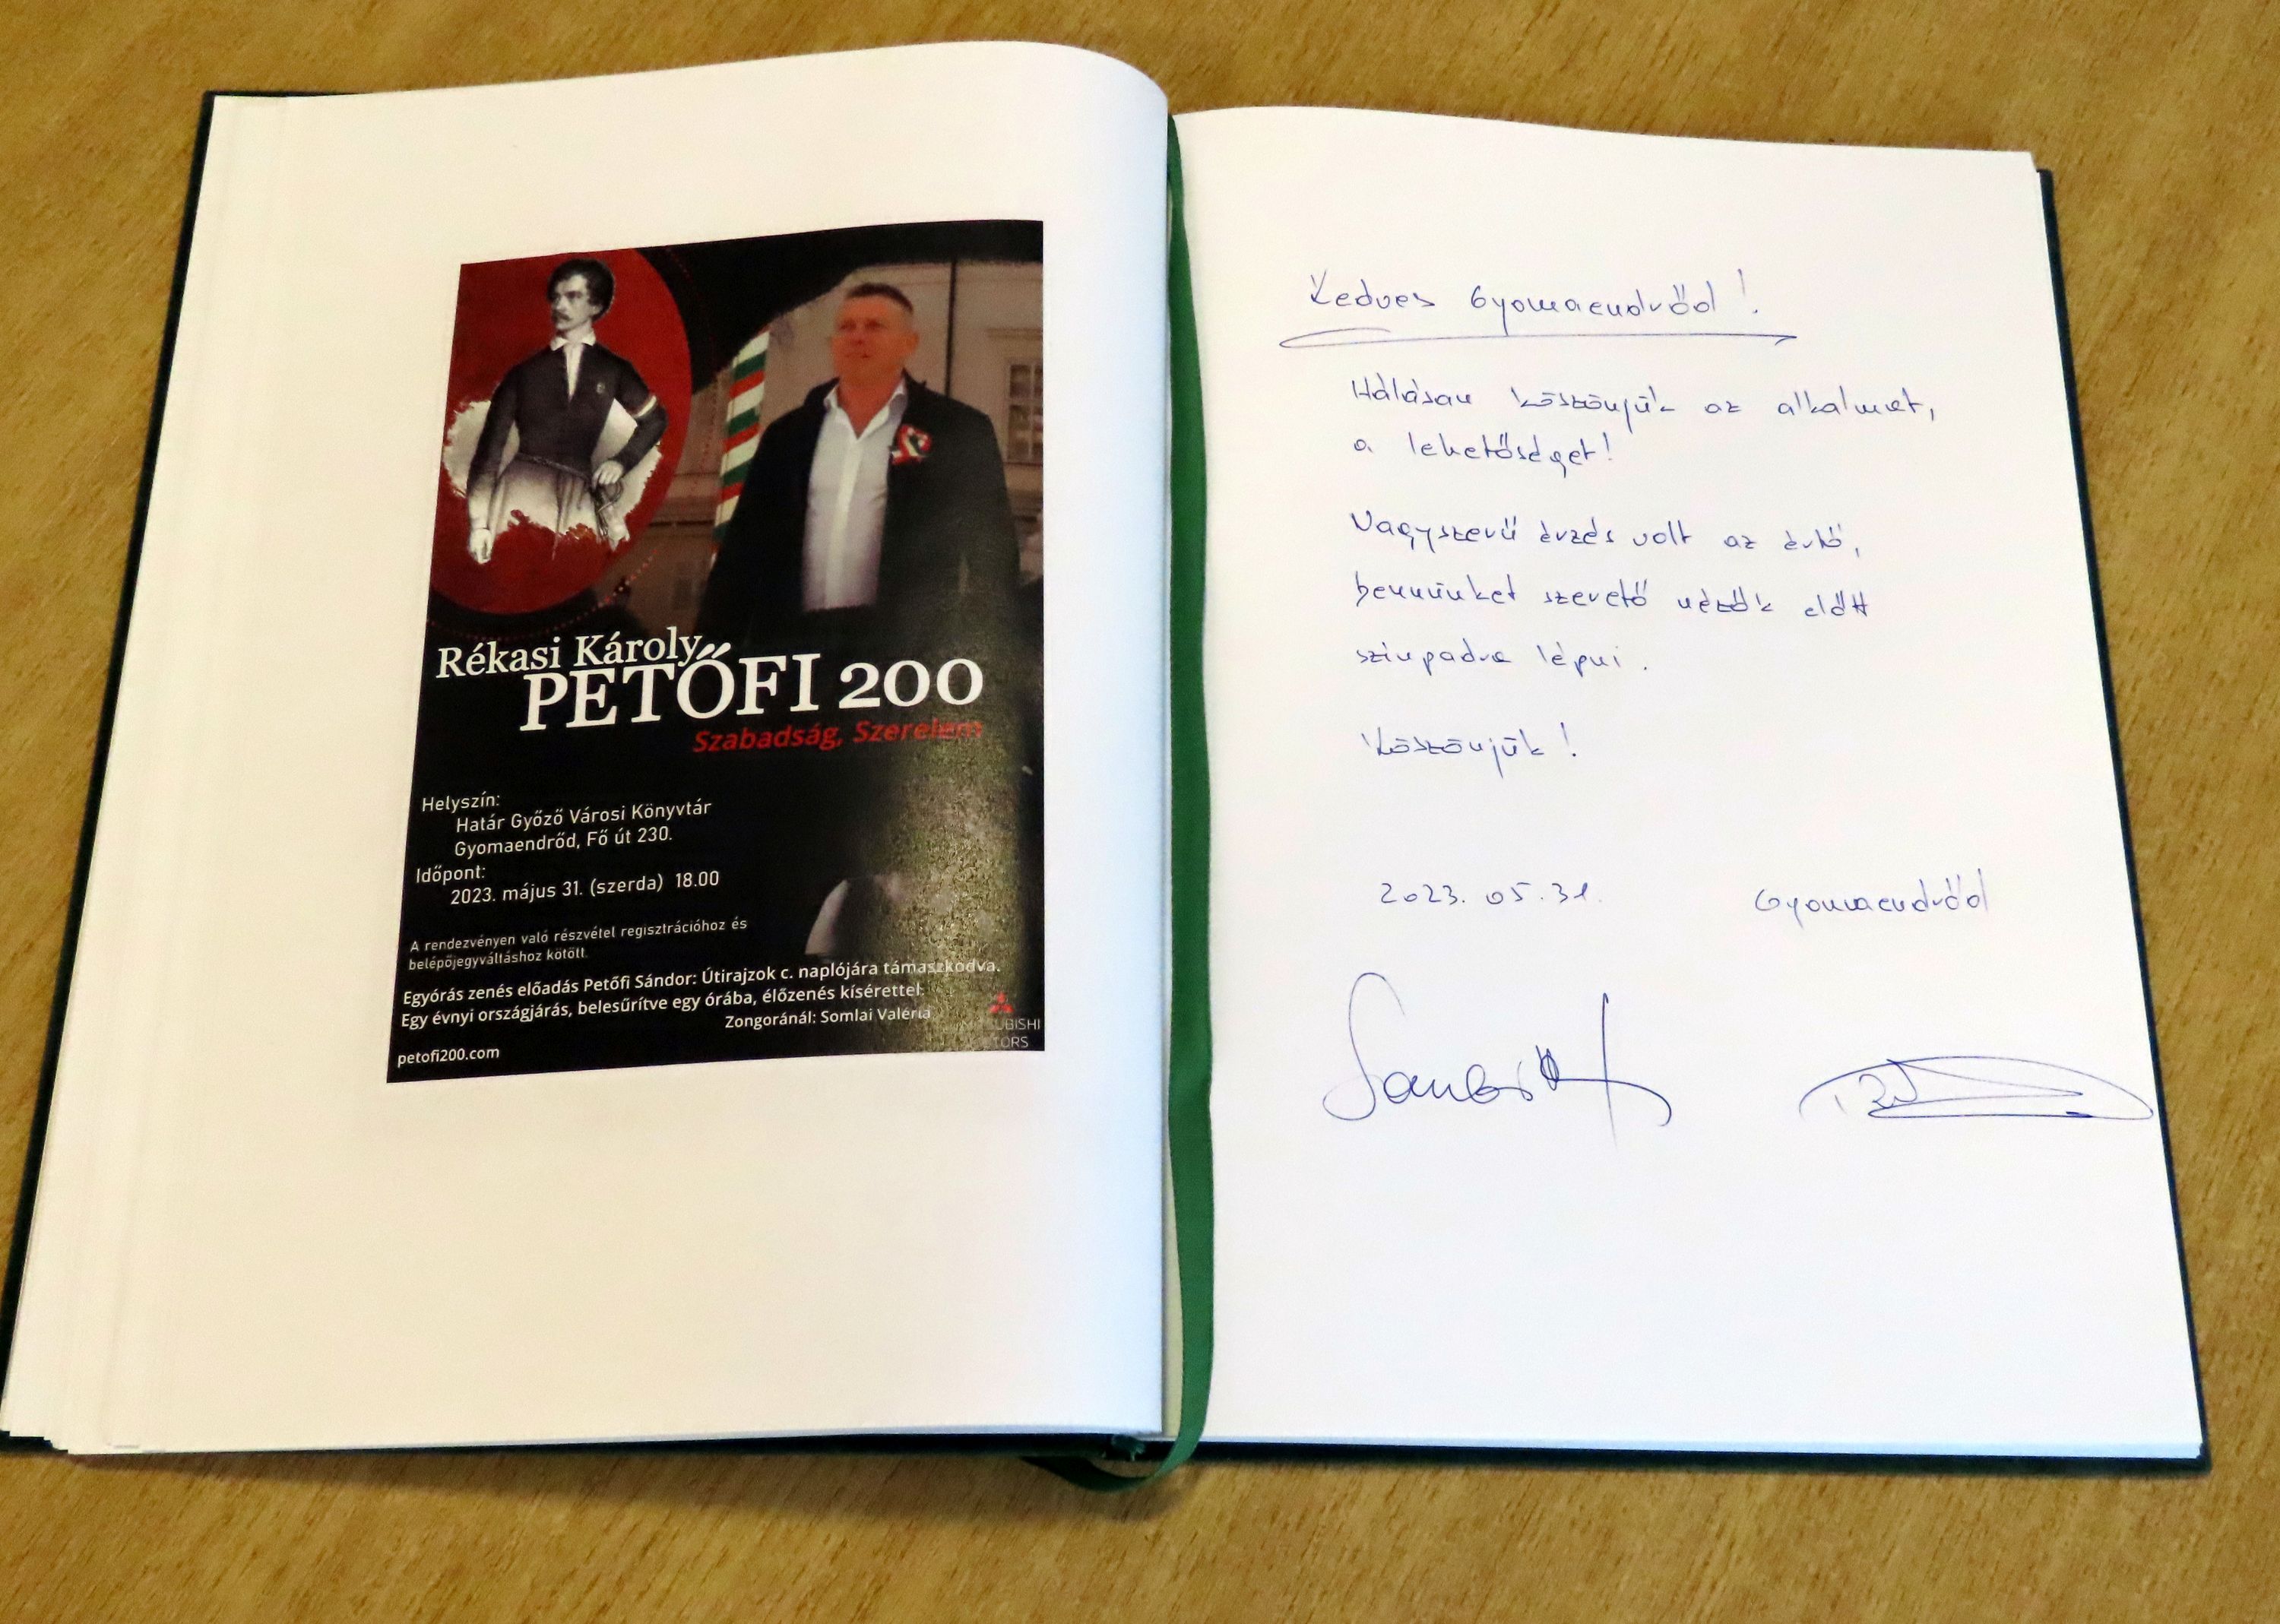 Rékasi Károly
PETŐFI 200
Szabadság, Szerelem
Helyszín:
Határ Győző Városi Könyvtár
Gyomaendrőd, Fő út 230.
Időpont:
2023. május 31. (szerda) 18.00
A rendezvényen való részvétel regisztrációhoz és
belépőjegyváltáshoz kötött.
Egyórás zenés előadás Petőfi Sándor: Útirajzok c. naplójára támaszkodva.
Egy évnyi országjárás, belesűrítve egy órába, élőzenés kísérettel.
Zongoránál: Somlai Valéria
petofi200.com
MITSUBISHI
MOTORS
Kedves Gyomaendrőd!
Hálásan köszönjük az alkalmat,
a lehetőséget!
Nagyszerű érzés volt az értő,
bennünket szerető nézők előtt
színpadra lépni.
Köszönjük!
2023. 05. 31. Gyomaendrőd